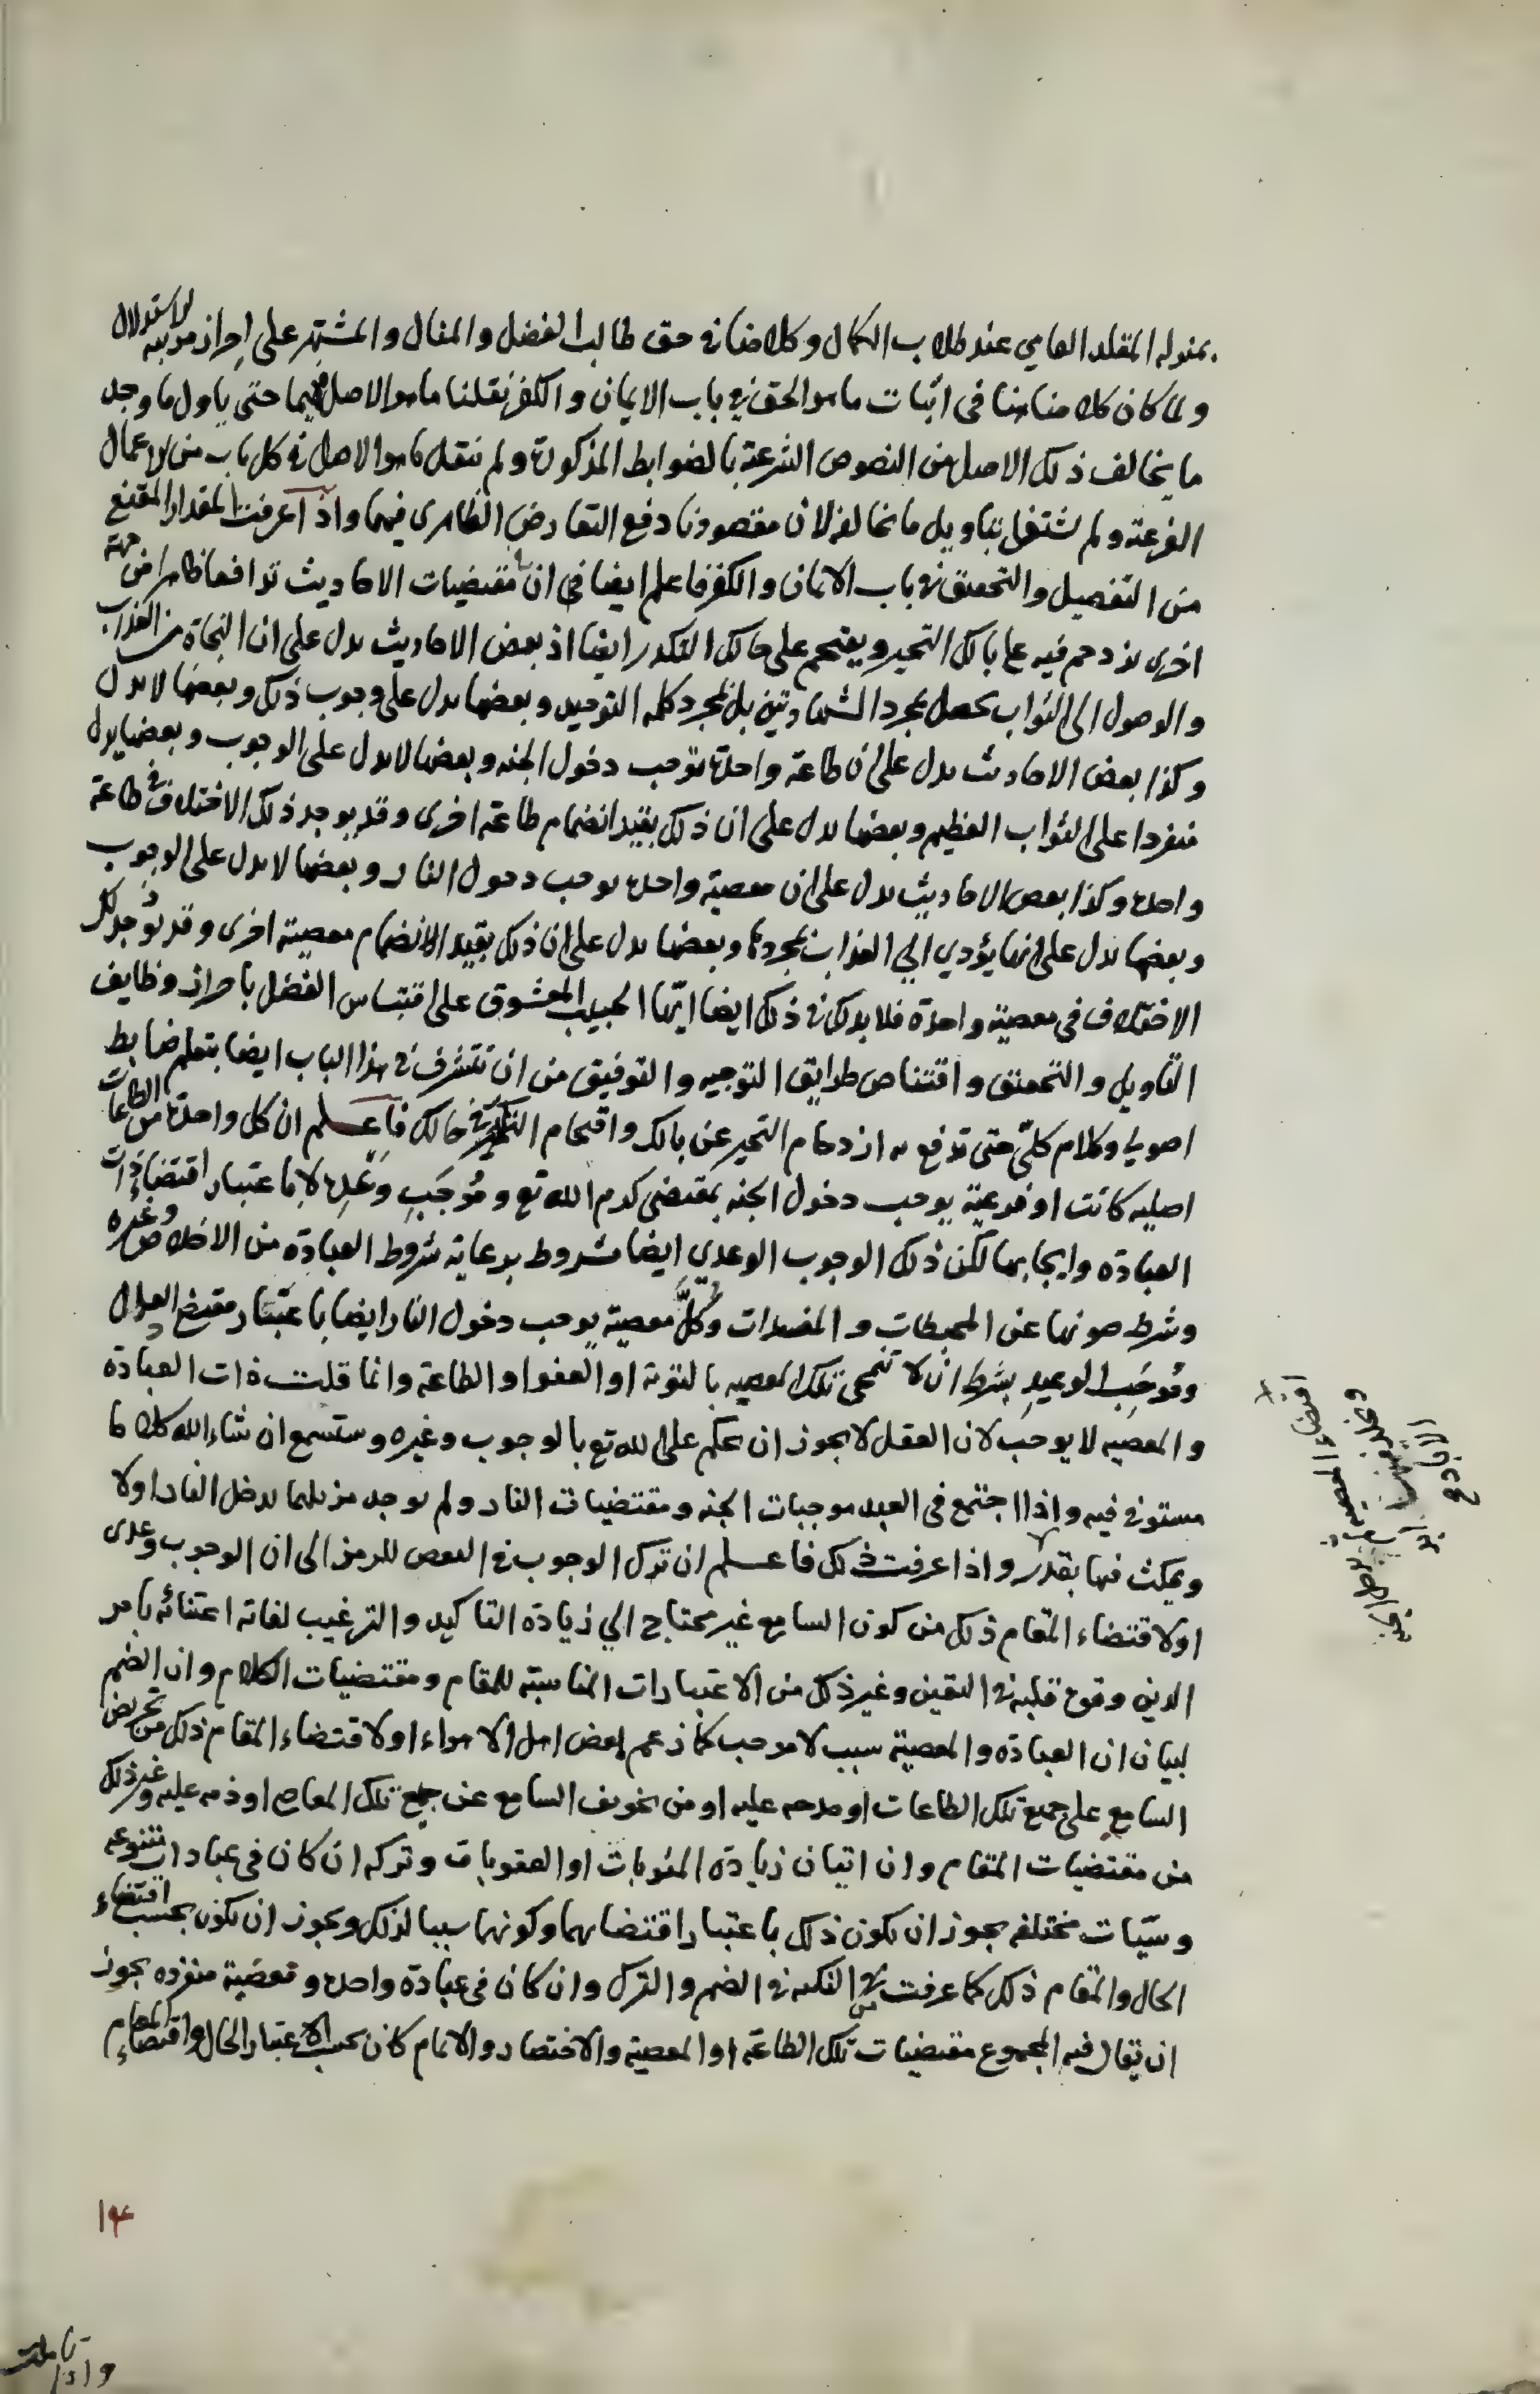 بمنزله المقلد العامي عند طلاب الكمال وكلامنا في حق طالب الفضل والمنال والمشتهر على احراز مرتبه الاستدلال
ولما كان كلامنا هنا في اثبات ما هو الحق في باب الايمان والكفر نقلنا ما هو الاصل فيهما حتى ياول ما وجد
ما يخالف ذلك الاصل من النصوص الشرعية بالضوابط المذكورة ولم ننقل ما هو الاصل في كل باب من الاعمال
الفرعية ولم نشتغل بتاويل ما يخالفه لان مقصودنا دفع التعارض الظاهري فيهما واذا عرفت المقدار المقنع
من التفصيل والتحقيق في باب الايمان والكفر فاعلم ايضا في ان مقتضيات الاحاديث تدافعا ظاهرا من جهة
اخرى يزدحم فيه على بالك التحير ويقتحم على حالك التكدر ايضا اذ بعض الاحاديث يدل على ان النجاة من العذاب
والوصول الى الثواب يحصل بمجرد الشهادتين بل بمجرد كلمه التوحيد وبعضها يدل على وجوب ذلك وبعضها لا يدل
وكذا بعض الاحاديث يدل على ان طاعة واحدة توجب دخول الجنه وبعضها لا يدل على الوجوب وبعضها يدل
منفردا على الثواب العظيم وبعضها يدل على ان ذلك بقيد انضمام طاعة اخرى وقد يوجد ذلك الاختلاف في طاعة
واحدة وكذا بعض الاحاديث يدل على ان معصية واحدة يوجب دخول النار وبعضها لا يدل على الوجوب
وبعضها يدل على انها يؤدي الي العذاب بمجردها وبعضها يدل على ان ذلك بقيد الانضمام معصية اخرى وقد يوجد ذلك
الاختلاف في معصية واحدة فلا بد لك في ذلك ايضا ايها الحبيب المعشوق على اقتباس الفضل باحراز وظايف
التاويل والتحقيق واقتناص طرايق التوجيه والتوفيق من ان تتشرف في هذا الباب ايضا بتعلم ضابط
اصولي وكلام كلي حتى تدفع به ازدحام التحير عن بالك واقتحام التكدر في حالك فاعلم ان كل واحدة من الطاعات
اصليه كانت او فرعية يوجب دخول الجنه بمقتضى كرم الله تع وموجب وعده لا باعتبار اقتضاء ذات
العبادة وايجابها لكن ذلك الوجوب الوعدي ايضا مشروط برعاية شروط العبادة من الاخلاص وغيره
وشرط صونها عن المحبطات والمفسدات وكل معصية يوجب دخول النار ايضا باعتبار مقتضى العدل
وموجب الوعيد بشرط ان لا تنمحي تلك المعصيه بالتوبة او العفو او الطاعة وانما قلت ذات العبادة
والمعصيه لا يوجب لان العقل لا يجوز ان يحكم على الله تع بالوجوب وغيره وستسمع ان شاء الله كلاما
مستوفى فيه واذا اجتمع في العبد موجبات الجنه ومقتضيات النار ولم يوجد مزيلها يدخل النار اولا
ويمكث فيها بقدر واذا عرفت ذلك فاعلم ان ترك الوجوب في البعض للرمز الى ان الوجوب وعدى
اولاقتضاء المقام ذلك من كون السامع غير محتاج الي زيادة التاكيد والترغيب لغاية اعتنائه بامر
الدين وقوع قلبه في اليقين وغير ذلك من الاعتبارات المناسبة للمقام ومقتضيات الكلام وان الضم
لبيان ان العبادة والمعصية سبب لا موجب كما زعم بعض اهل الاهواء اولاقتضاء المقام ذلك من تحريض
السامع على جميع تلك الطاعات او مدحه عليه او من تخويف السامع عن جميع تلك المعاصي او ذمه عليه وغير ذلك
من مقتضيات المقام وان اتيان زيادة المثوبات او العقوبات وتركه ان كان في عبادات متنوعه
وسيات مختلفه يجوز ان يكون ذلك باعتبار اقتضايهما وكونهما سببا لذلك ويجوز ان يكون بحسب اقتضاء
الحال والمقام ذلك كما عرفت من النكته في الضم والترك وان كان في عبادة واحدة ومعصية منفردة يجوز
ان يقال فيه المجموع مقتضيات تلك الطاعة او المعصية والاختصار والاتمام كان بحسب الاعتبار الحال واقتضاء المقام
١٤